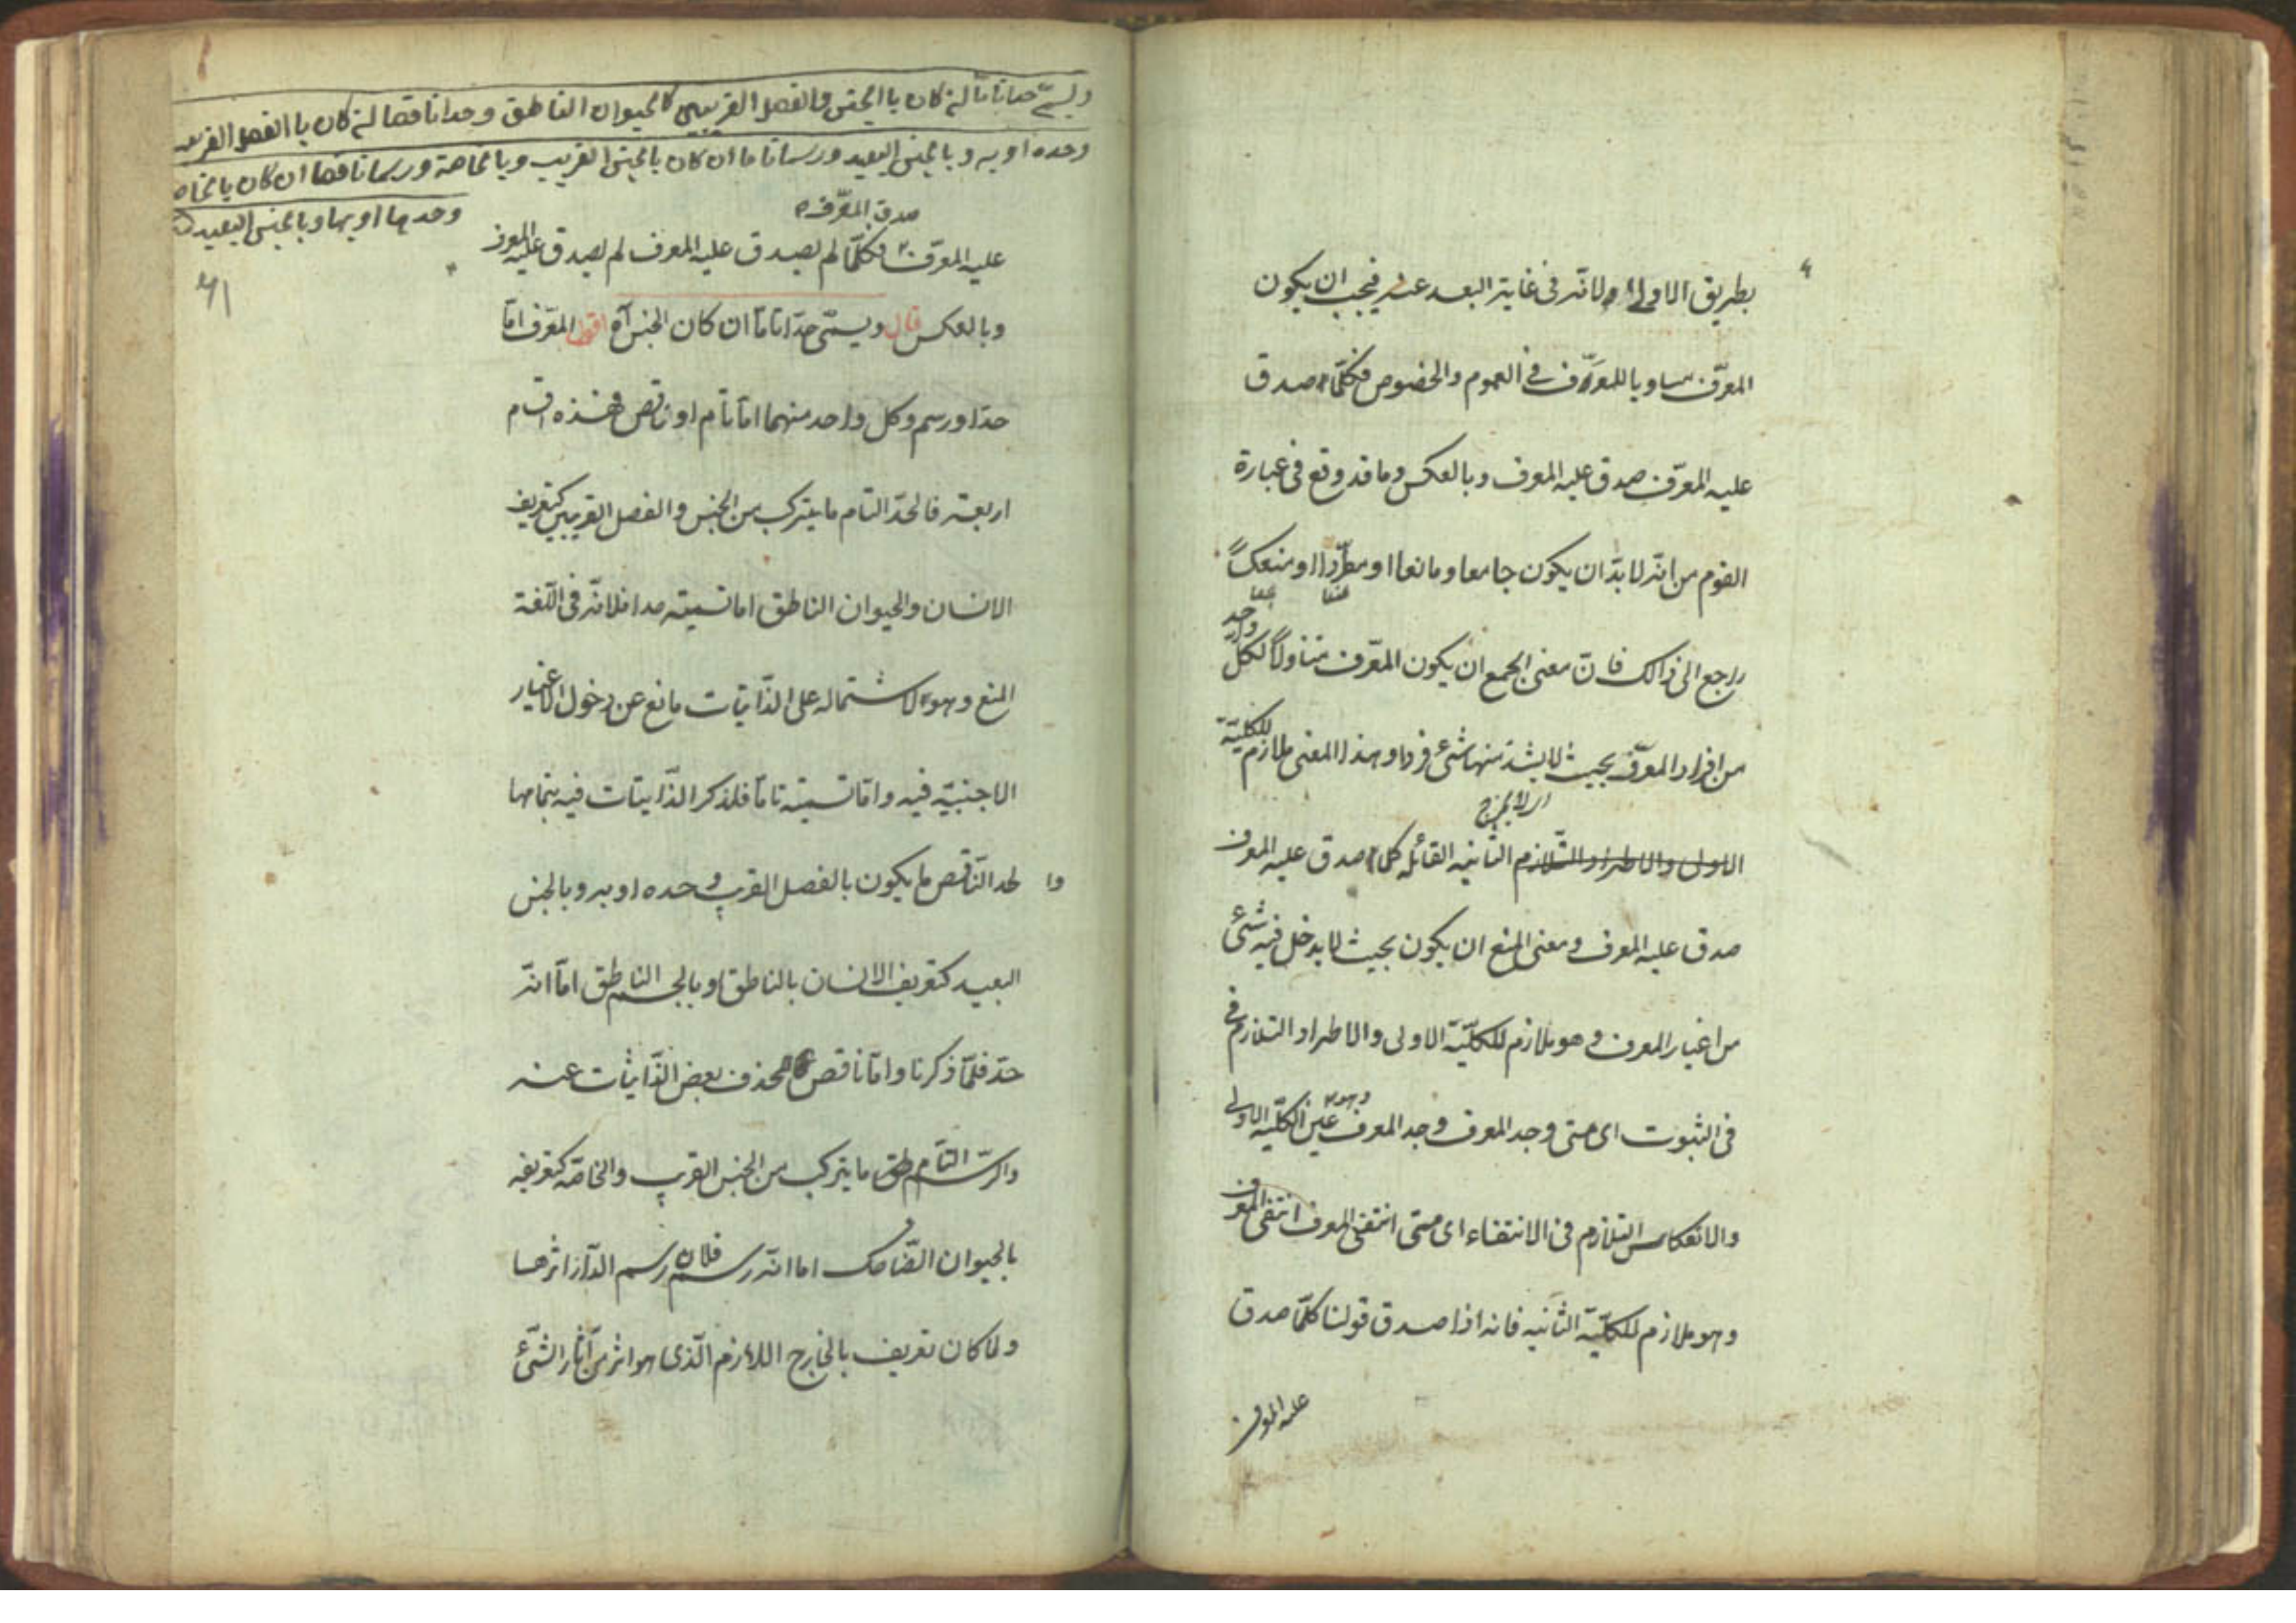 بطريق الاولى ولانه فى غاية البعد عنه فيجب ان يكون
المعرّف مساويا للمعرَّف فى العموم والخصوص فكلّما صدق
عليه المعرّف صدق عليه المعرف وبالعكس وما قد وقع فى عبارة
القوم من انّه لا بدّ ان يكون جامعا ومانعا او مطّردا او منعكسًا
راجع الى ذالك فانّ معنى الجمع ان يكون المعرّف متناولاً لكلّ واحد
من افراد المعرّف بحيث لا يشذ منها شئ فرد وهذا المعنى ملازم للكليّة
الاول والاطراد التلازم الثانيه القائله كلما صدق عليه المعرف
صدق عليه المعرف ومعنى المنع ان يكون بحيث لا يدخل فيه شئ
من اغيار المعرف وهو ملازم للكليّة الاولى والاطراد التلازم فى
فى الثبوت اى متى وجد المعرف وجد المعرف وهو عين الكليّة الاولى
والانعكاس التلازم فى الانتفاء اى متى انتفى المعرف انتفى المعرف
وهو ملازم للكليّة الثانيه فانه اذا صدق قولنا كلّما صدق
عليه المعرف
ويسمّى حدا تامّا ان كان باالجنس والفصل القريبين كالحيوان الناطق وحدا ناقصا ان كان باالفصل القريب
وحده او به وبالجنس البعيد ورسما تاما ان كان بالجنس القريب وبالخاصة ورسما ناقصا ان كان بالخاصه
وحدها او بها وبالجنس البعيد
صدق المعرّف
عليه المعرّف فكلّما لم يصدق عليه المعرف لم يصدق عليه المعرف
وبالعكس قال ويسمّى حدّا تامّا ان كان الجنس آه اقول المعرّف امّا
حدّ او رسم وكل واحد منهما امّا تام او ناقص فهذه اقسام
اربعة فالحدّ التام ما يتركب من الجنس والفصل القريبين كتعريف
الانسان والحيوان الناطق اما تسميته حدا فلانّه فى اللّغة
المنع وهو لاشتماله على الذّاتيات مانع عن دخول الاغيار
الاجنبيّة فيه وامّا تسميته تامّا فلذكر الذّاتيّات فيه بتمامها
والحد النّاقص ما يكون بالفصل القريب وحده او به وبالجنس
البعيد كتعريف الانسان بالناطق او بالجسم الناطق امّا انّه
حدّ فلمّا ذكرنا وامّا ناقص فلحذف بعض الذّاتيات عنه
والرّسم التّام ما يتركب من الجنس القريب والخاصّه كتعريفه
بالحيوان الضّاحك اما انّه رسم فلان رسم الدّار اثرها
ولما كان تعريف بالخارج اللازم الّذى هو اثر من آثار الشّئ